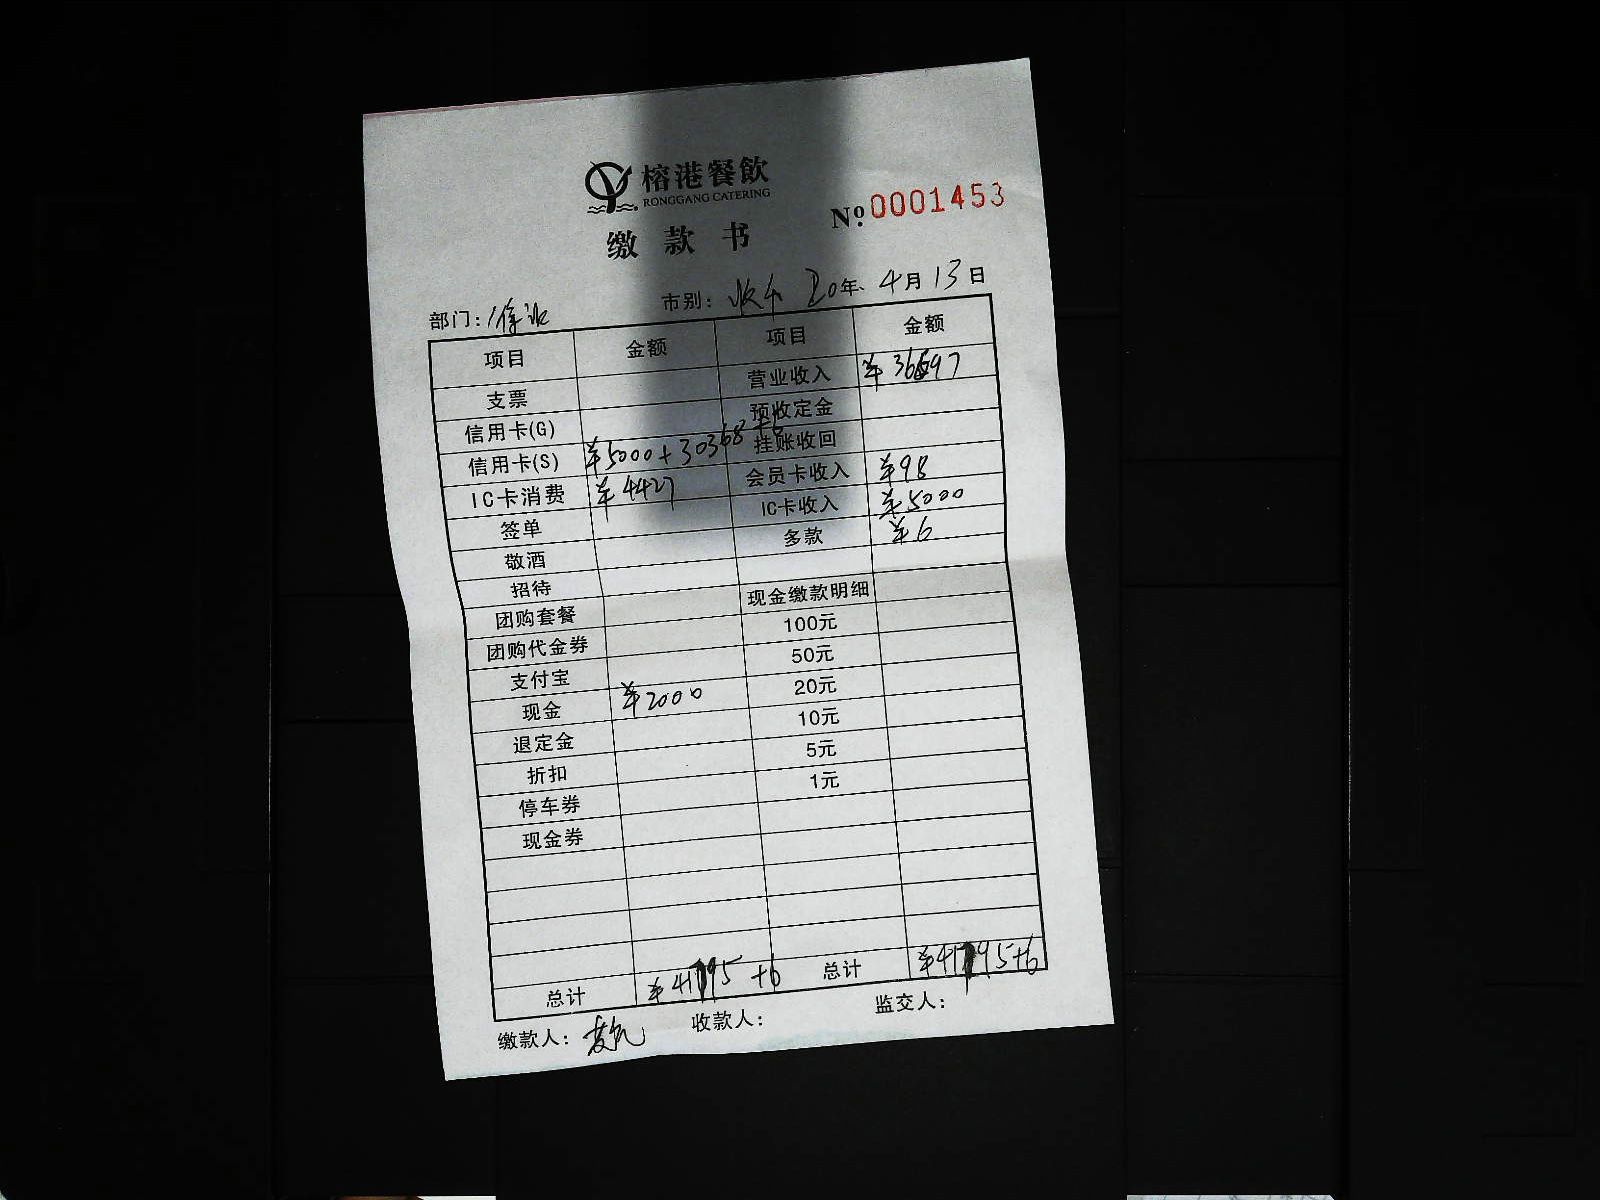 榕港餐飲
RONGGANG CATERING
№ 0001453
缴款书
部门: 市别: 收市 20年 4月 13日
项目 金额 项目 金额
支票 营业收入 ¥36697
信用卡(G) 预收定金
信用卡(S) ¥5000+30368+6 挂账收回
IC卡消费 ¥4427 会员卡收入 ¥98
签单 IC卡收入 ¥5000
敬酒 多款 ¥6
招待
团购套餐 现金缴款明细
团购代金券 100元
支付宝 50元
现金 ¥2000 20元
退定金 10元
折扣 5元
停车券 1元
现金券
总计 ¥41795+6 总计 ¥41795+6
缴款人: 收款人: 监交人: